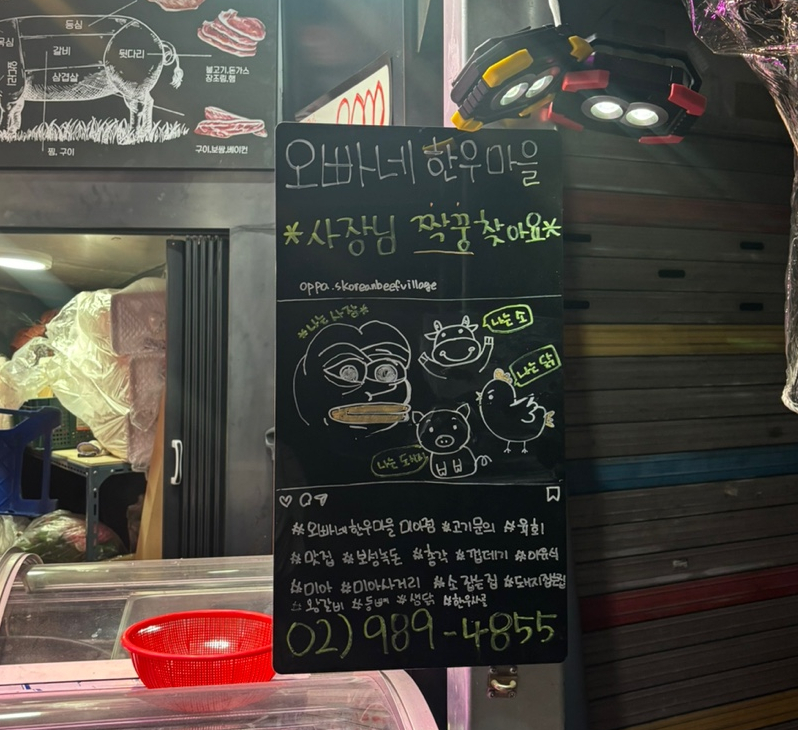 등심
목심
갈비
뒷다리
앞다리
삼겹살
불고기,돈가스
장조림,햄
찜, 구이
구이,보쌈,베이컨
오빠네 한우마을
*사장님 짝꿍찾아요*
oppa.skoreanbeefvillage
*나는 사장*
나는 소
나는 닭
나는 돼지
#오빠네한우마을 미아점 #고기문의 #육회
#맛집 #보성녹돈 #총각 #껍데기 #이유식
#미아 #미아사거리 #소 잡는집 #돼지잡는집
#왕갈비 #등뼈 #생닭 #한우사골
02) 989-4855